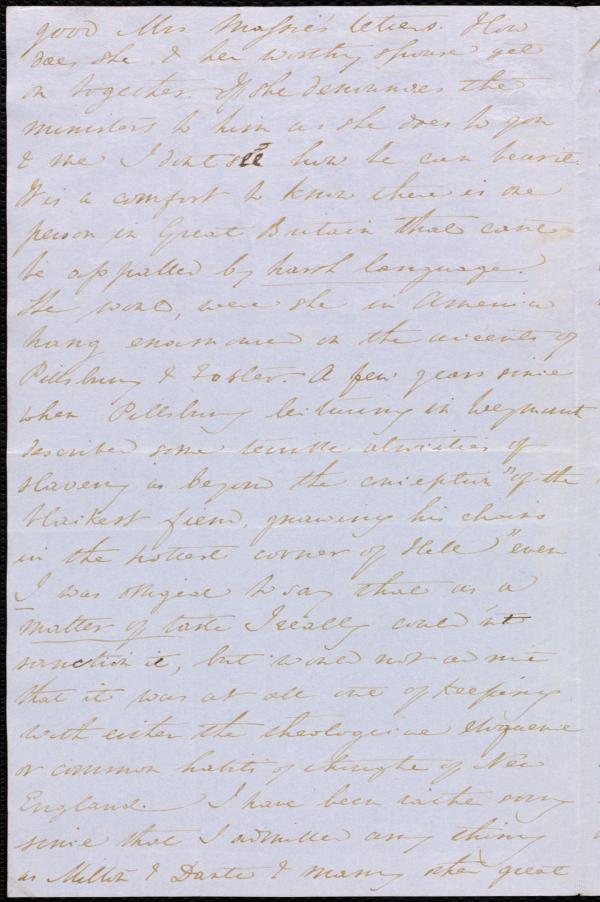 good Mrs Massie's letters. How
does she & her worthy spouse get
on together. If she denounces the
ministers to him as she does to you
& me I dont see how he can bear it.
It is a comfort to know there is one
person in Great Britain that cant
be appalled by harsh language.
She would, were she in America
hang enamoured on the accents of
Pillsbury & Foster. A few years since
when Pillsbury lecturing in Weymouth
described some terrible atrocities of
slavery as beyond the conception "of the
blackest fiend, gnawing his chains
in the hottest corner of Hell" even
I was obliged to say that as a
matter of taste I really could n't
sanction it, but would not admit
that it was at all out of keeping
with either the theological eloquence
or common habits of thought of New
England. I have been rather sorry
since that I admitted any thing
as Milton & Dante & many other great